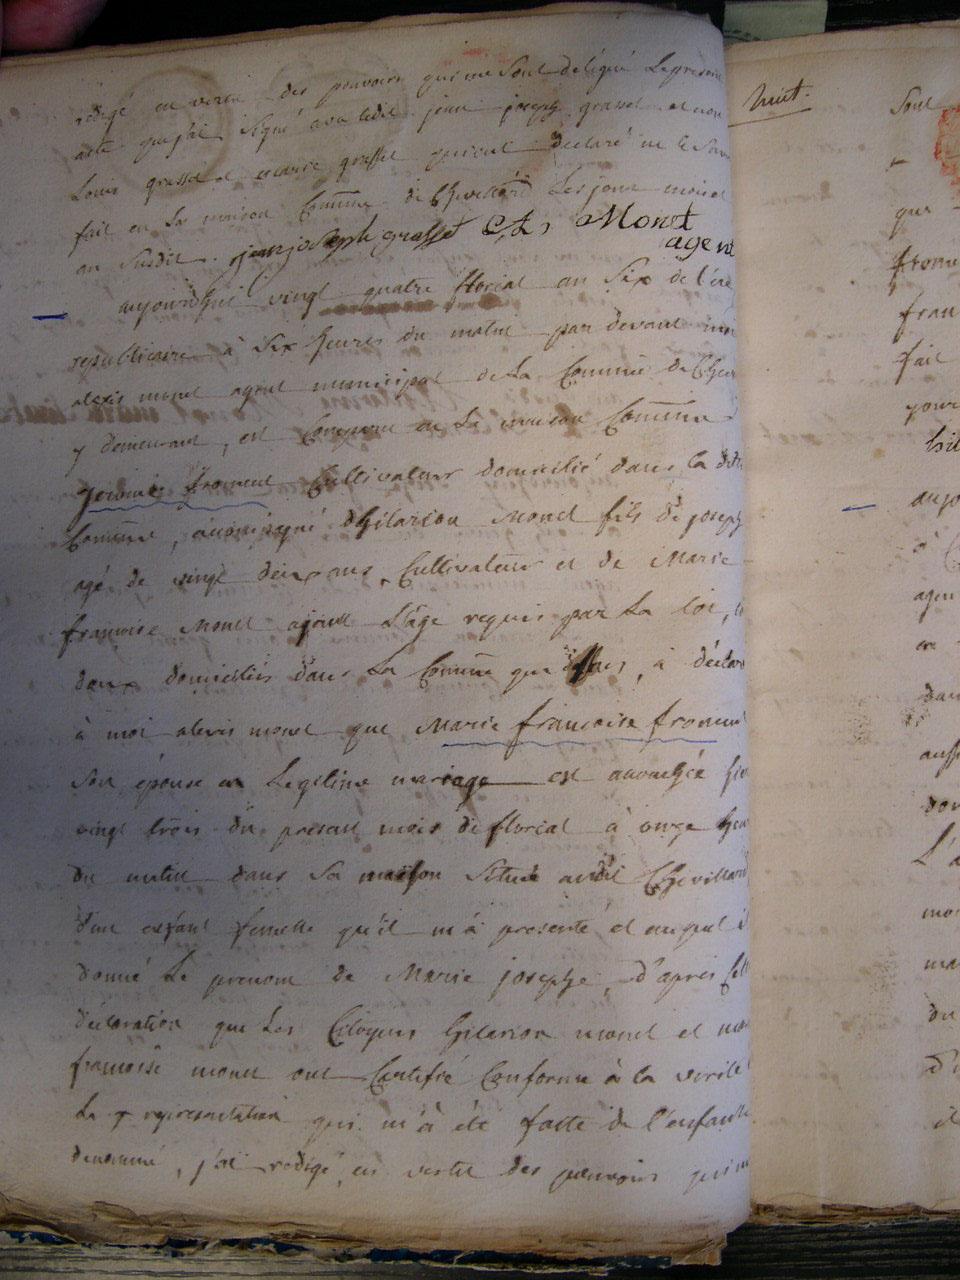 rédigé en vertu des pouvoirs qui me sont délégué le present
acte que j'ai signé avec ledit jean joseph grasset et non
Louis grasset et marie grasset qui ont declaré ne le savoir
fait en la maison Commune de Chevillard Les jour mois et
an susdit. jean joseph grasset Als Monet
agent
aujourd'hui vingt quatre floréal an Six de l'ère
republicaine à Six heures du matin par devant moi
alexis monet agent municipal de La Commune de Chev
y demeurant, est Comparu en La maison Commune
froment Cultivateur domicilié dans la dite
Commune, accompagné d'hilarion Monet fils de joseph
agé de vingt deux ans, Cultivateur et de Marie
françoise Monet ayant L'âge requis par La loi,
deux domiciliés dans La Commune que dessus, à déclaré
à moi alexis monet que Marie françoise froment
son épouse en Legitime mariage est accouchée hier
vingt trois du present mois de floréal à onze heures
du matin dans sa maison située audit Chevillard
d'un enfant femelle qu'il m'à presenté et auquel il
donné Le prenom de Marie josephe, d'après cette
declaration que Les Citoyens hilarion monet et
françoise monet ont Certifié Conforme à la verité
La representation qui m'à été faite de l'enfant
denommé, j'ai redigé en vertu des pouvoirs qui me
huit.
Sont
que
frome
fran
fait
jour
hil
aujo
à
agen
en
dan
auss
don
L'a
mo
ma
du
d'
il